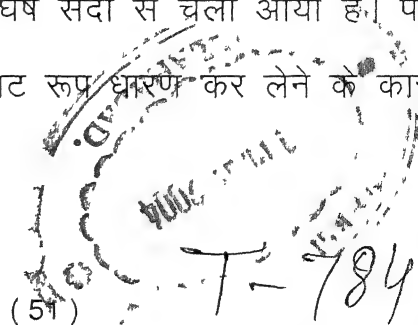 घर्ष सदा से चला आया है। प
ट रूप धारण कर लेने के कार
(51)
T-784